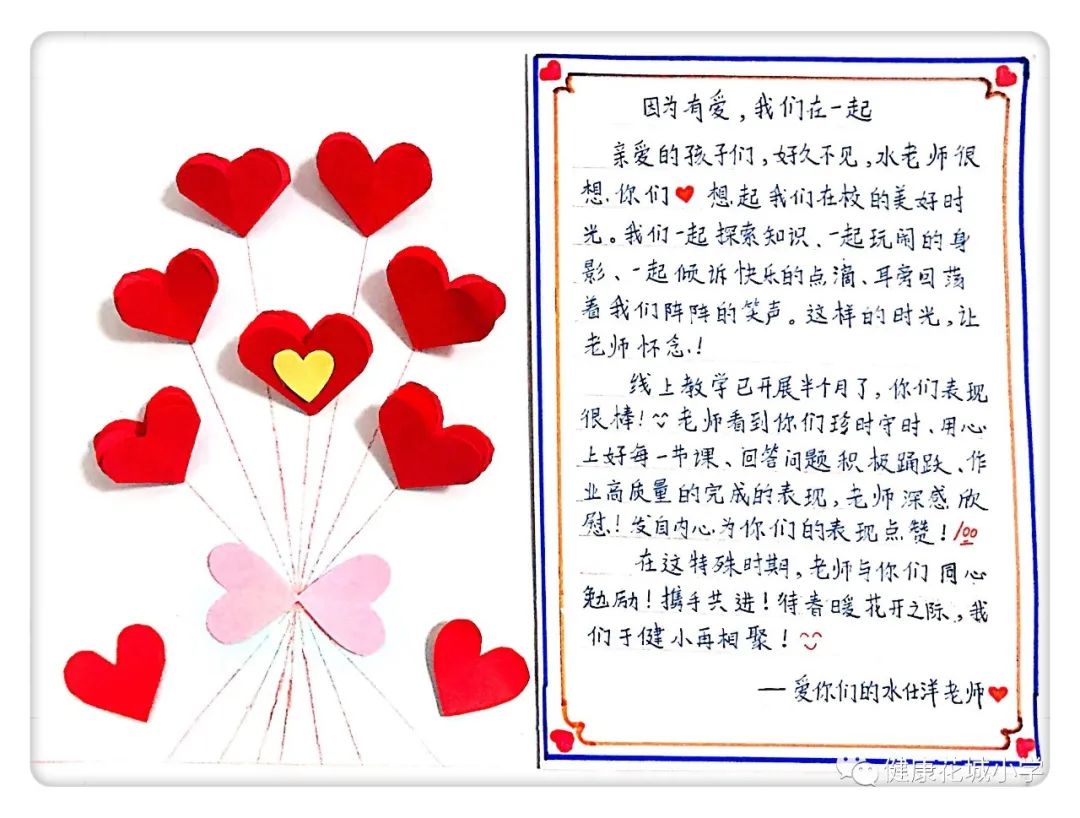 因为有爱,我们在一起
亲爱的孩子们,好久不见,水老师很
想你们 想起我们在校的美好时
光。我们一起探索知识、一起玩闹的身
影、一起倾诉快乐的点滴、耳旁回荡
着我们阵阵的笑声。这样的时光,让
老师怀念!
线上教学已开展半个月了,你们表现
很棒!老师看到你们珍时守时、用心
上好每一节课、回答问题积极踊跃、作
业高质量的完成的表现,老师深感欣
慰!发自内心为你们的表现点赞!100
在这特殊时期,老师与你们同心
勉励!携手共进!待春暖花开之际,我
们于健小再相聚!
——爱你们的水仕洋老师
健康花城小学